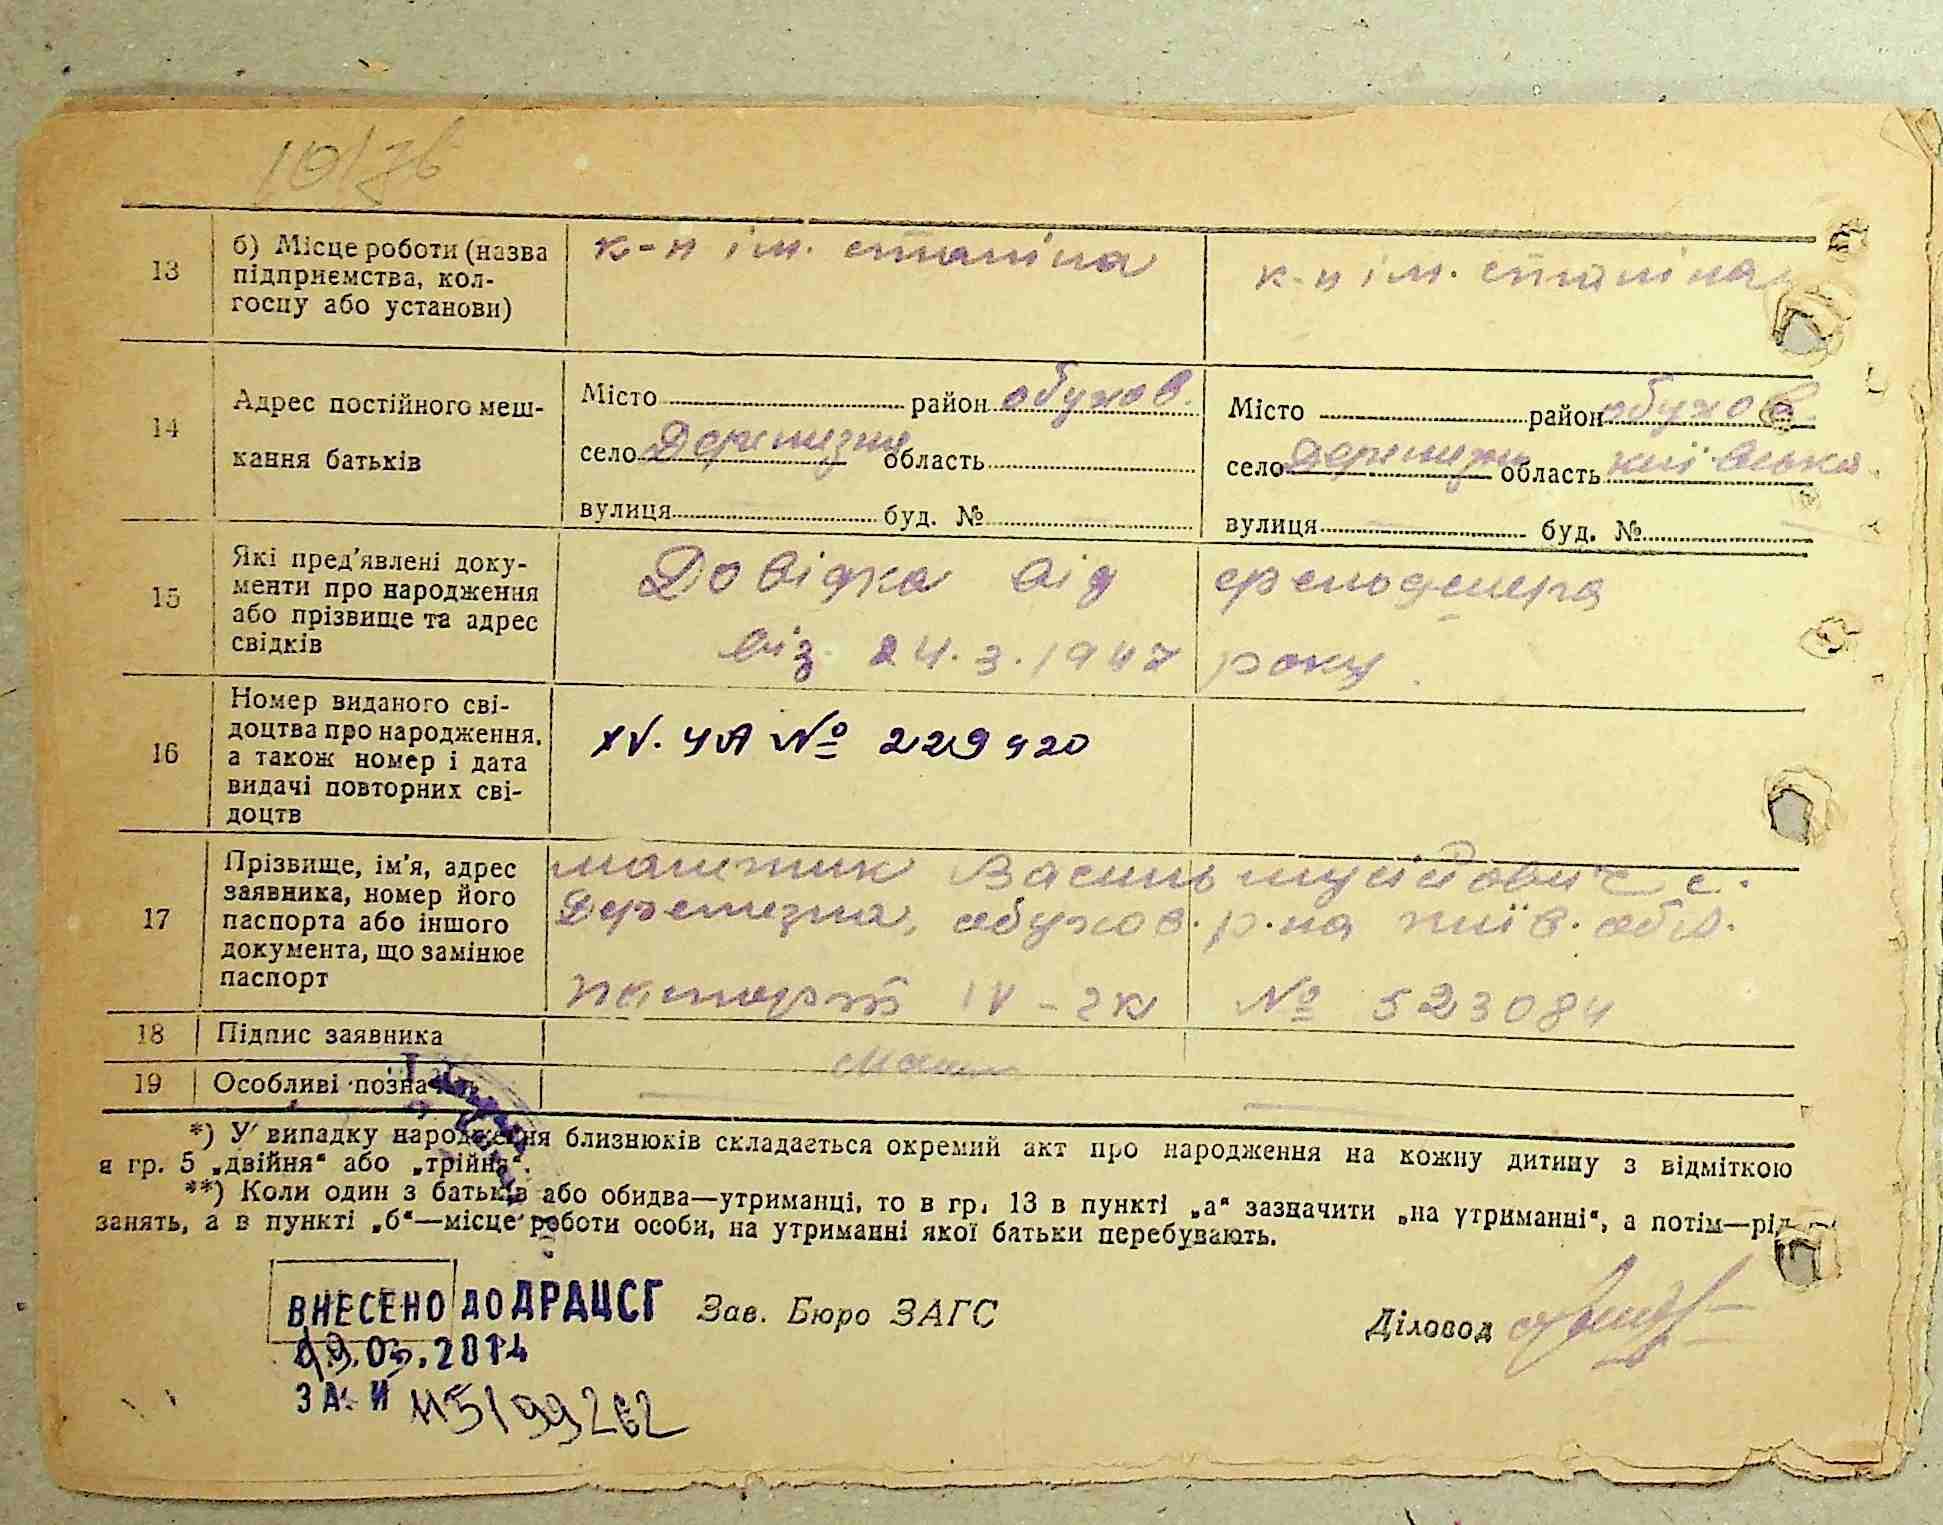 10/76
13
б) Місце роботи (назва
підприємства, кол-
госпу або установи)
к-п ім. сталіна
к-п ім. сталіна
14
Адрес постійного меш-
кання батьків
Місто район обухов.
село Деремезна область
вулиця буд. №
Місто район обухов.
село Деремезна область київська
вулиця буд. №
15
Які пред'явлені доку-
менти про народження
або прізвище та адрес
свідків
Довідка від
від 24.3.1947 року
16
Номер виданого сві-
доцтва про народження,
а також номер і дата
видачі повторних сві-
доцтв
XV. УА № 229420
17
Прізвище, ім'я, адрес
заявника, номер його
паспорта або іншого
документа, що замінює
паспорт
Василь с.
Деремезна, обухов. р-на київ. обл.
паспорт IV-ЧК № 523084
18
Підпис заявника
19
Особливі позна
*) У випадку народження близнюків складається окремий акт про народження на кожну дитину з відміткою
в гр. 5 „двійня" або „трійня".
**) Коли один з батьків або обидва—утриманці, то в гр. 13 в пункті „а" зазначити „на утриманні", а потім—рід
занять, а в пункті „б"—місце роботи особи, на утриманні якої батьки перебувають.
ВНЕСЕНО ДО ДРАЦСГ
Зав. Бюро ЗАГС
Діловод
19.03.2014
ЗА И 115/99262